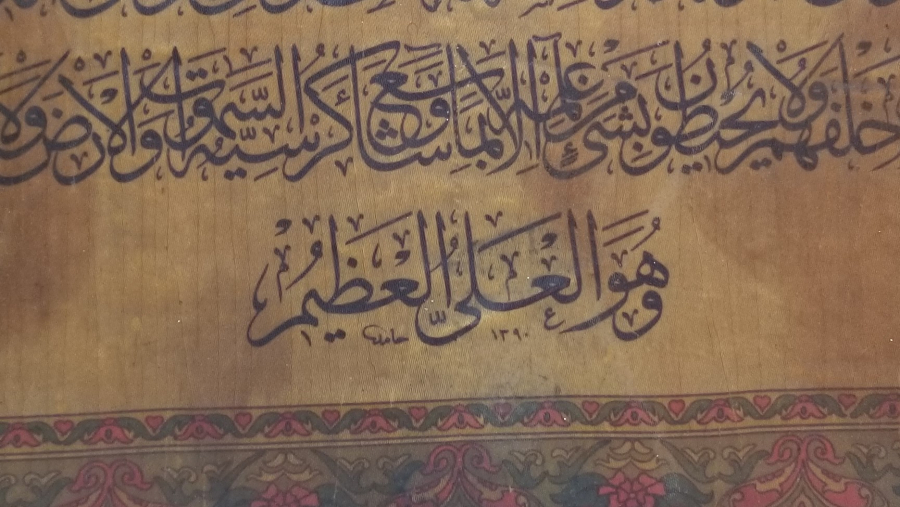 خلفهم ولا يحيطون بشيء من علمه إلا بما شاء وسع كرسيه السموات والأرض ولا
وهو العلي العظيم
حامد ١٣٩٠